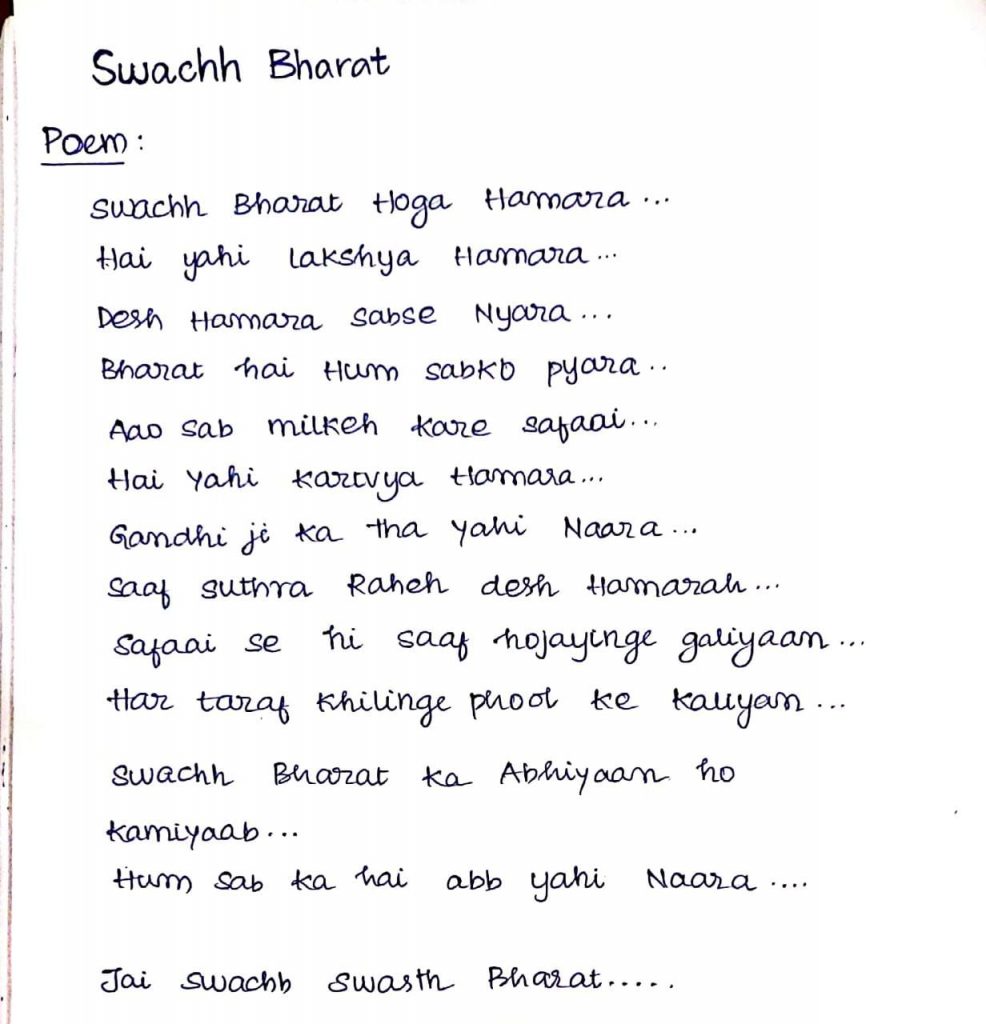 Swachh Bharat
Poem :
Swachh Bharat Hoga Hamara ...
Hai yahi lakshya Hamara ...
Desh Hamara sabse Nyara ...
Bharat hai Hum sabko pyara ..
Aao sab milkeh kare safaai ...
Hai yahi kartvya Hamara ...
Gandhi ji ka tha yahi Naara ...
Saaf suthra Raheh desh Hamarah ...
Safaai se hi saaf hojayinge galiyaan ...
Har taraf khilinge phool ke kaliyan ...
Swachh Bharat ka Abhiyaan ho
kamiyaab ...
Hum sab ka hai abb yahi Naara ....
Jai swachh swasth Bharat .....